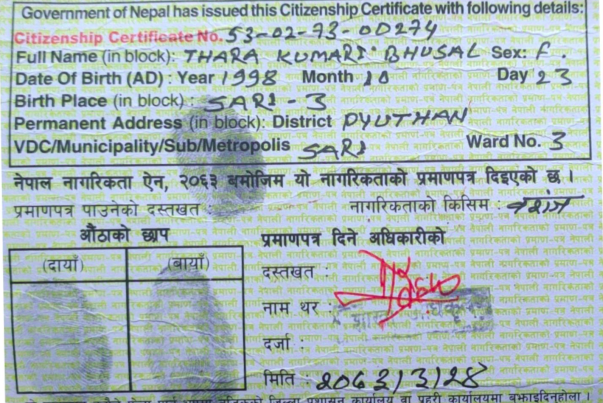 Government of Nepal has issued this Citizenship Certificate with following details:
Citizenship Certificate No. 53-02-73-00274
Full Name (in block): THARA KUMARI BHUSAL Sex: F.
Date Of Birth (AD) : Year 1998 Month 10 Day 23
Birth Place (in block) : SARI - 3
Permanent Address (in block): District PYUTHAN
VDC/Municipality/Sub/Metropolis SARI Ward No. 3
नेपाल नागरिकता ऐन, २०६३ बमोजिम यो नागरिकताको प्रमाणपत्र दिइएको छ ।
प्रमाणपत्र पाउनेको दस्तखत : नागरिकताको किसिम : वंशज
औंठाको छाप
(दायाँ) (बायाँ)
प्रमाणपत्र दिने अधिकारीको
दस्तखत :
नाम थर :
दर्जा :
मिति : 2063/3/28
जिल्ला प्रशासन कार्यालय वा प्रहरी कार्यालयमा बुझाइदिनुहोला ।